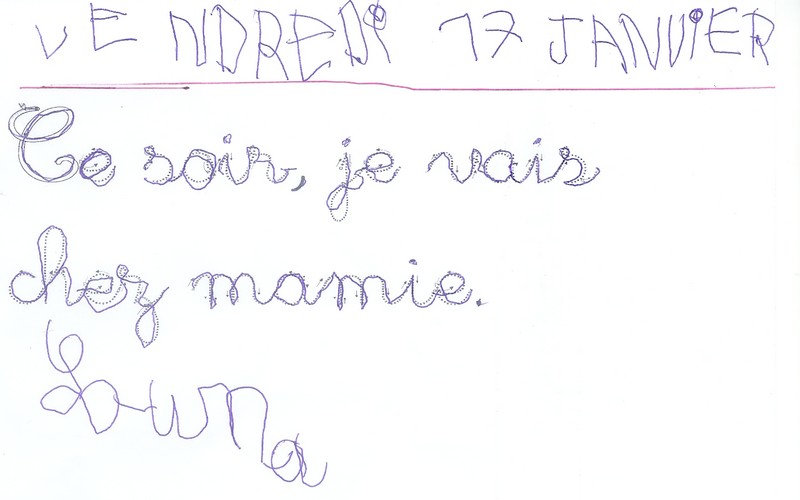 VENDREDI 17 JANVIER
Ce soir, je vais
chez mamie.
Louna